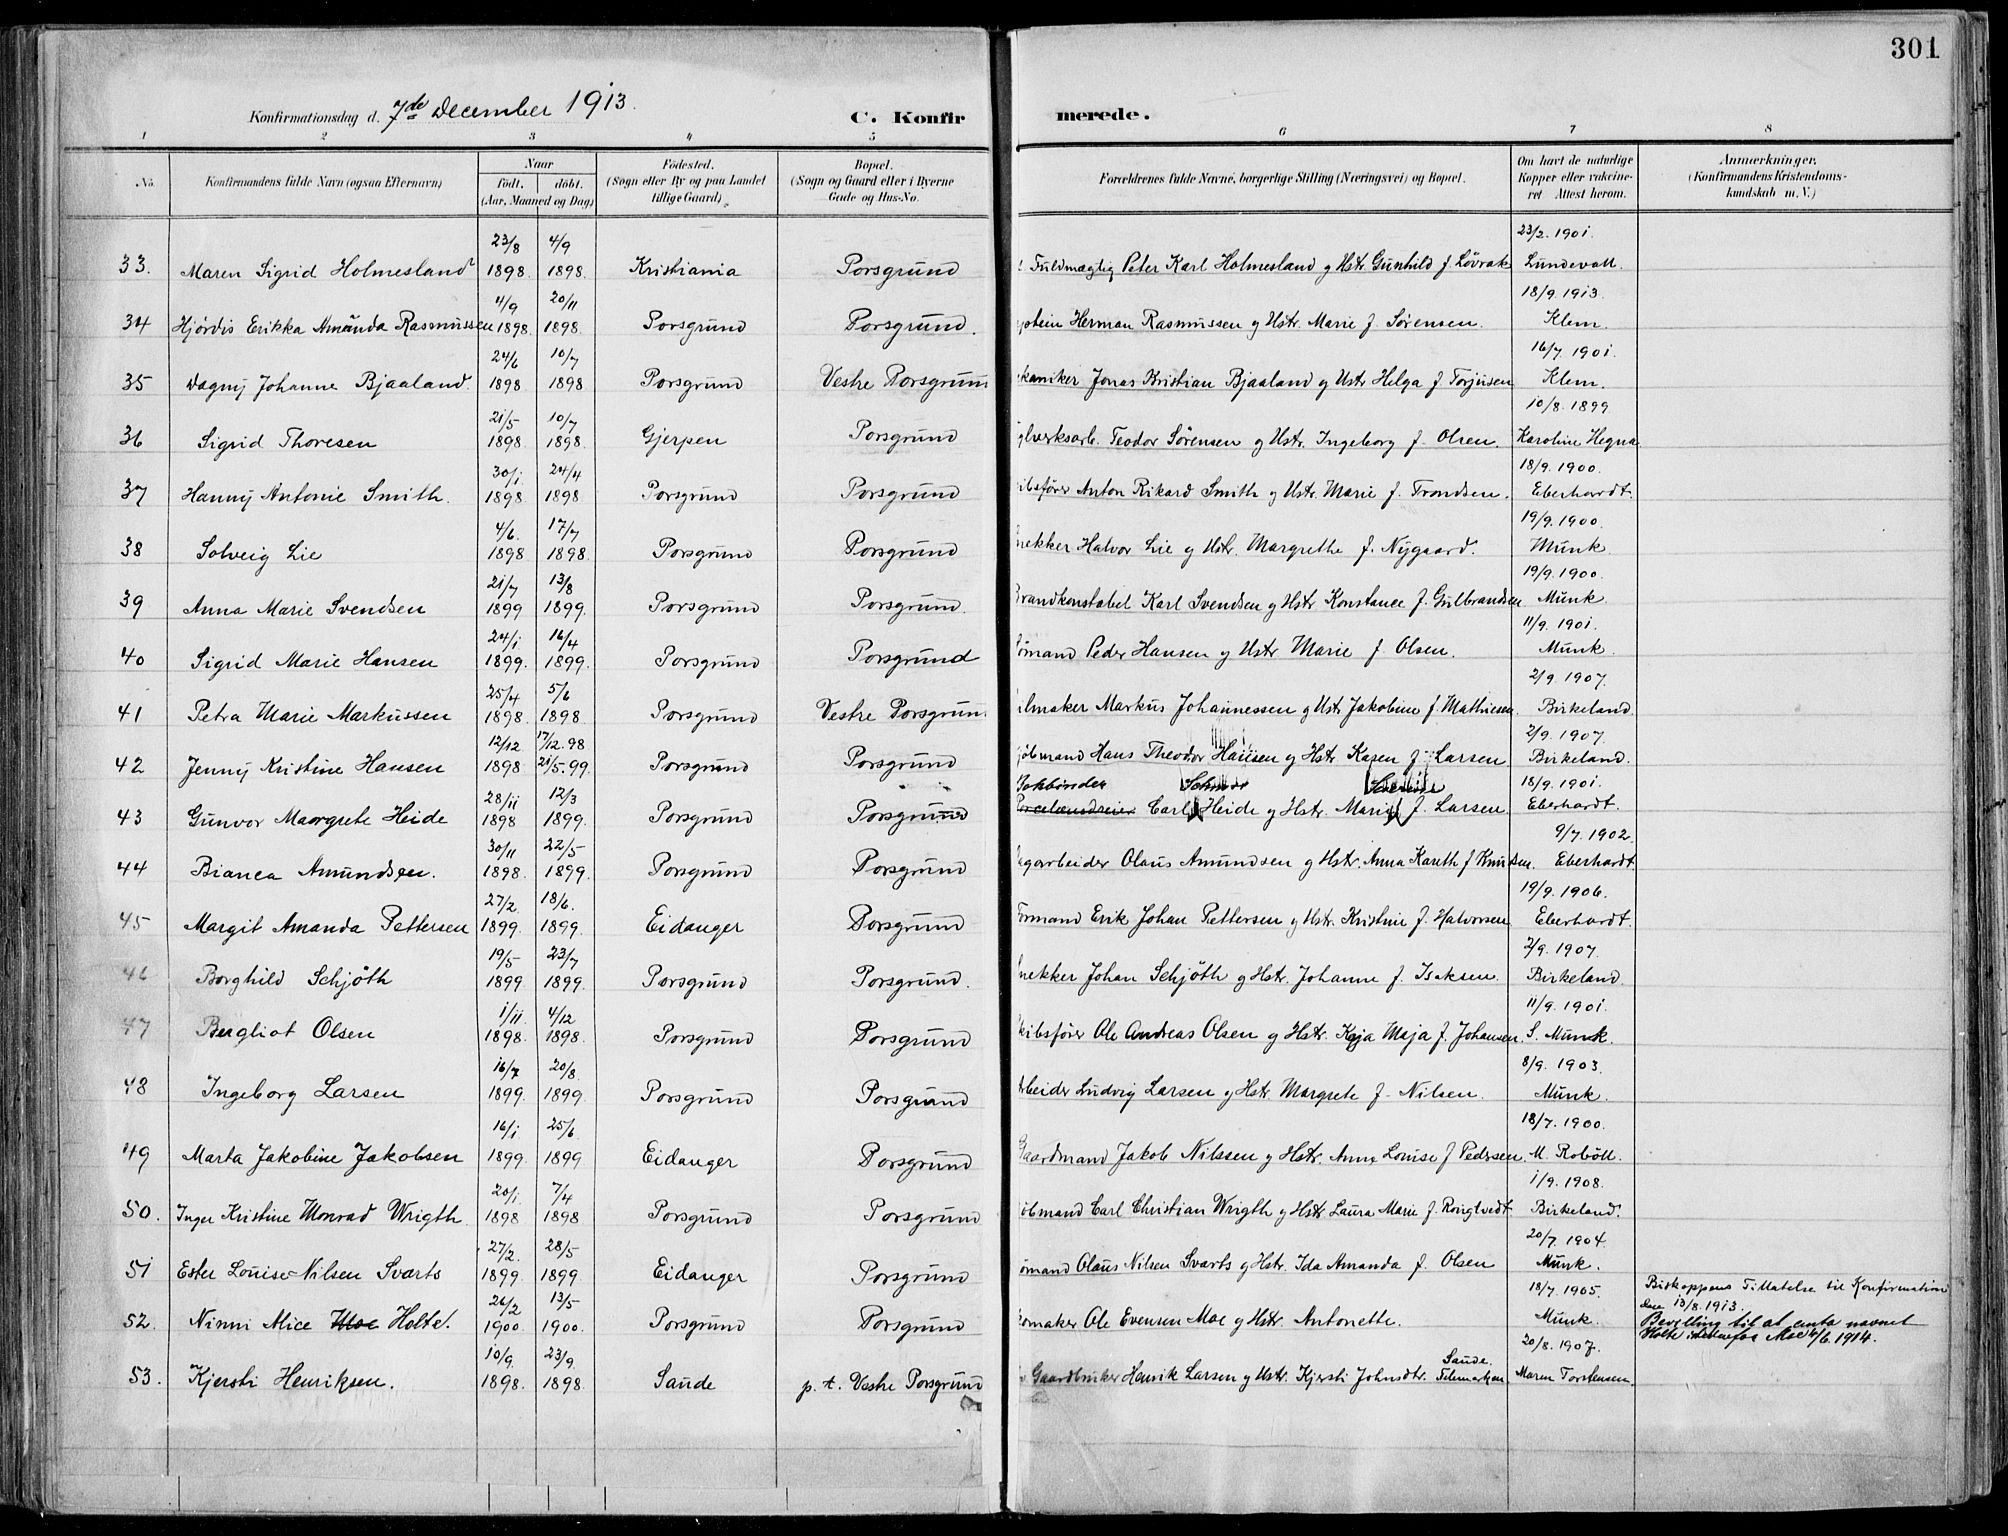 301
Konfirmationsdag d. 7de December 1913.
C. Konfirmerede.
1 2 3 4 5 6 7 8
No.
Konfirmandens fulde Navn (ogsaa Efternavn)
Naar
født. døbt.
(Aar, Maaned og Dag)
Fødested.
(Sogn eller By og paa Landet
tillige Gaard)
Bopæl.
(Sogn og Gaard eller i Byerne
Gade og Hus-No.
Forældrenes fulde Navne, borgerlige Stilling (Næringsvei) og Bopæl.
Om havt de naturlige
Kopper eller vakcine-
ret Attest herom.
Anmærkninger.
(Konfirmandens Kristendoms-
kundskab m. V.)
23/8 4/9 23/2. 1901.
33. Maren Sigrid Holmesland 1898. 1898. Kristiania Porsgrund Fuldmægtig Peter Karl Holmesland og Hstr Gunhild f. Løvrak Lundevall.
4/9 20/11 18/9. 1913.
34 Hjørdis Erikka Amanda Rasmussen 1898. 1898. Porsgrund Porsgrund. Herman Rasmussen og Hstr. Marie f. Sørensen. Klem.
24/6 10/7 16/7. 1901.
35 Dagny Johanne Bjaaland. 1898 1898 Porsgrund Vestre Porsgrund Jonas Kristian Bjaaland og Hstr Helga f. Torjusen Klem.
21/5 10/7 10/8. 1899.
36 Sigrid Thoresen 1898 1898. Gjerpen Porsgrund Teodor Sørensen og Hstr. Ingeborg f. Olsen. Karoline Hegna
30/1 24/4 18/9. 1900.
37 Hanny Antonie Smith. 1898 1898 Porsgrund Porsgrund Anton Rikard Smith og Hstr. Marie f. Trondsen. Eberhardt.
4/6. 17/7 19/9. 1900.
38 Solveig Lie 1898 1898. Porsgrund Porsgrund Halvor Lie og Hstr. Margrethe f. Nygaard. Munk
21/7 13/8 19/9. 1900.
39 Anna Marie Svendsen 1899 1899. Porsgrund Porsgrund. Brandkonstabel Karl Svendsen og Hstr Konstance f. Gulbrandsen Munk.
24/1 16/4 11/9. 1901.
40 Sigrid Marie Hansen 1899. 1899. Porsgrund Porsgrund Peder Hansen og Hstr Marie f. Olsen. Munk.
25/4 5/6 2/9. 1907.
41 Petra Marie Markussen 1898. 1898. Porsgrund Vestre Porsgrund Markus Johannessen og Hstr Jakobine f. Mathiesen. Birkeland.
12/12 17/12. 98 2/9. 1907.
42 Jenny Kristine Hansen 1898 21/5. 99. Porsgrund Porsgrund Hans Theodor Hansen og Hstr Karen f. Larsen Birkeland.
28/11 12/3 Bokbinder 18/9. 1901.
43 Gunvor Margrete Heide 1898 1899. Porsgrund Porsgrund Carl Heide og Hstr. Marie f. Larsen Eberhardt.
30/11 22/5 9/7. 1902.
44 Bianca Amundsen. 1898. 1899. Porsgrund Porsgrund Olaus Amundsen og Hstr. Anna Kareth f Knutsen. Eberhardt
27/2. 18/6. 19/9. 1906.
45 Margit Amanda Pettersen 1899. 1899. Eidanger Porsgrund Erik Johan Pettersen og Hstr. Kristine f. Halvorsen Eberhardt.
19/5 23/7 2/9. 1907.
46 Borghild Schjøth 1899 1899. Porsgrund Porsgrund. Johan Schjøth og Hstr. Johanne f. Isaksen. Birkeland.
1/11. 4/12 11/9. 1901.
47 Bergliot Olsen 1898. 1898. Porsgrund Porsgrund Ole Andreas Olsen og Hstr. Kaja Maja f. Johansen. S. Munk.
16/7 20/8 8/9. 1903.
48 Ingeborg Larsen 1899. 1899. Porsgrund Porsgrund Ludvig Larsen og Hstr. Margrete f. Nilsen. Munk.
16/1. 25/6 18/7. 1900.
49 Marta Jakobine Jakobsen 1899. 1899 Eidanger Porsgrund Gaardmand Jakob Nilssen og Hstr. Anna Louise f Pedersen. M. Roböll.
20/1. 7/4 1/9. 1908.
50. Inger Kristine Monrad Wrigth 1898 1898 Porsgrund Porsgrund Carl Christian Wrigth og Hstr. Laura Marie f. Rongtvedt Birkeland.
27/2. 28/5 20/7. 1904.
51 Ester Louise Nilsen Svarts 1899. 1899 Eidanger Porsgrund Olaus Nilsen Svarts og Hstr. Ida Amanda f. Olsen Munk.
26/2 13/5 18/7. 1905. Biskoppens Tilladelse til Konfirmation
den 13/8. 1913.
52. Ninni Alice Moe Holte. 1900. 1900. Porsgrund Porsgrund Ole Evensen Moe og Hstr. Antonette. Munk. Bevilling til at anta navnet
Holte istedenfor Moe 6/6. 1914.
10/9. 23/9. 20/8. 1907.
Sande.
53. Kjersti Henriksen. 1898. 1898. Sande p. t. Vestre Porsgrund Gaardbruker Henrik Larsen og Hstr. Kjersti Johnsdtr. Telemarken Maren Torstensen.